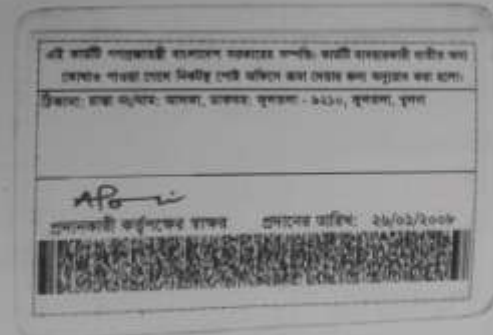 এই কার্ডটি গণপ্রজাতন্ত্রী বাংলাদেশ সরকারের সম্পত্তি। কার্ডটি ব্যবহারকারী ব্যতীত অন্য
কোথাও পাওয়া গেলে নিকটস্থ পোষ্ট অফিসে জমা দেবার জন্য অনুরোধ করা হলো।
ঠিকানা: গ্রাম/রাস্তা: ডাকঘর: ফুলতলা - ৯২১০, ফুলতলা, খুলনা
প্রদানকারী কর্তৃপক্ষের স্বাক্ষর প্রদানের তারিখ: ২৬/০১/২০০৮